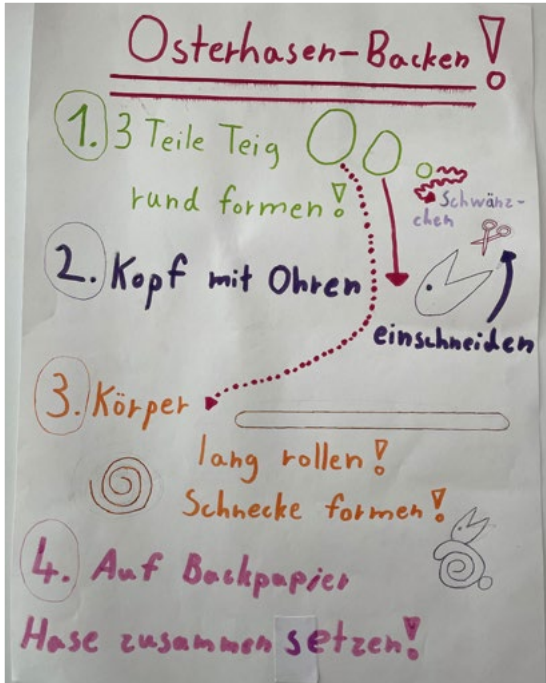 Osterhasen-Backen!
1. 3 Teile Teig
rund formen!
Schwänz-
chen
2. Kopf mit Ohren
einschneiden
3. Körper
lang rollen!
Schnecke formen!
4. Auf Backpapier
Hase zusammen setzen!